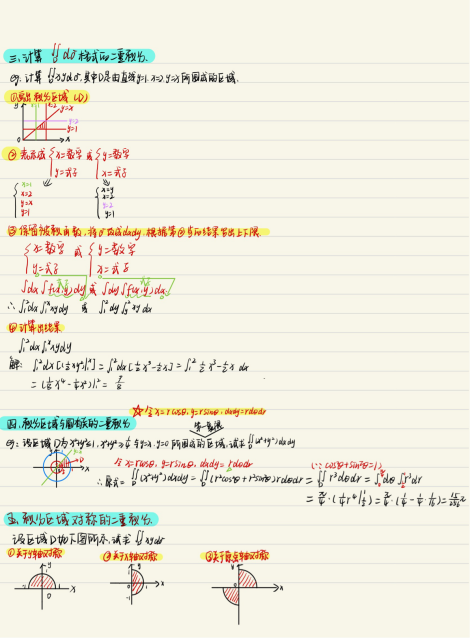 三.计算 ∬dσ 格式的二重积分.
eg. 计算 ∬xydσ,其中D是由直线y=1, x=2, y=x 所围成的区域.
①画出积分区域 (D)
y x=2 y=x
y=2
y=1
0 x
② 表示成 { x=数字 y=式子 或 { y=数字 x=式子
{ x=1 x=2 y=x y=1
{ x=y x=2 y=2 y=1
③保留被积函数,将σ改成dxdy,根据第②步的结果写出上下限.
{ x=数字 y=式子 或 { y=数字 x=式子
∫dx∫f(x,y)dy 或 ∫dy∫f(x,y)dx
∴ ∫₁²dx∫₁ˣxydy 或 ∫₁²dy∫y²xydx
④计算出结果
∫₁²dx∫₁ˣxydy
解: ∫₁²dx[½xy²|₁ˣ] = ∫₁²dx[½x³-½x] = ∫₁² ½x³-½x dx
= (⅛x⁴-¼x²)|₁² = 9/8
☆令x=rcosθ, y=rsinθ, dxdy=rdrdθ
四.积分区域与圆相关的二重积分
eg: 设区域D为x²+y²≤1, x²+y²≥¼ 与y=x, y=0所围成的区域,试求∬(x²+y²)dxdy
令x=rcosθ, y=rsinθ, dxdy=rdrdθ
(∵cos²θ+sin²θ=1)
∴原式=∬(x²+y²)dxdy=∬(r²cos²θ+r²sin²θ)rdrdθ=∬r³drdθ
五.积分区域对称的二重积分.
设区域D如下图所示,试求∬xydσ
①关于y轴对称 ②关于x轴对称 ③关于原点对称